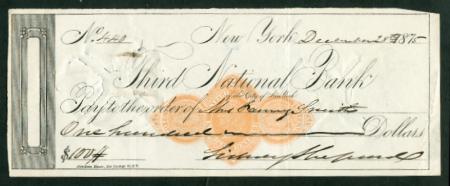 No. 440 New York December 28th 1875
Third National Bank
of the City of New York
Pay to the order of Mrs Fanny Smith
One hundred Dollars
$100
Sidney Shepard